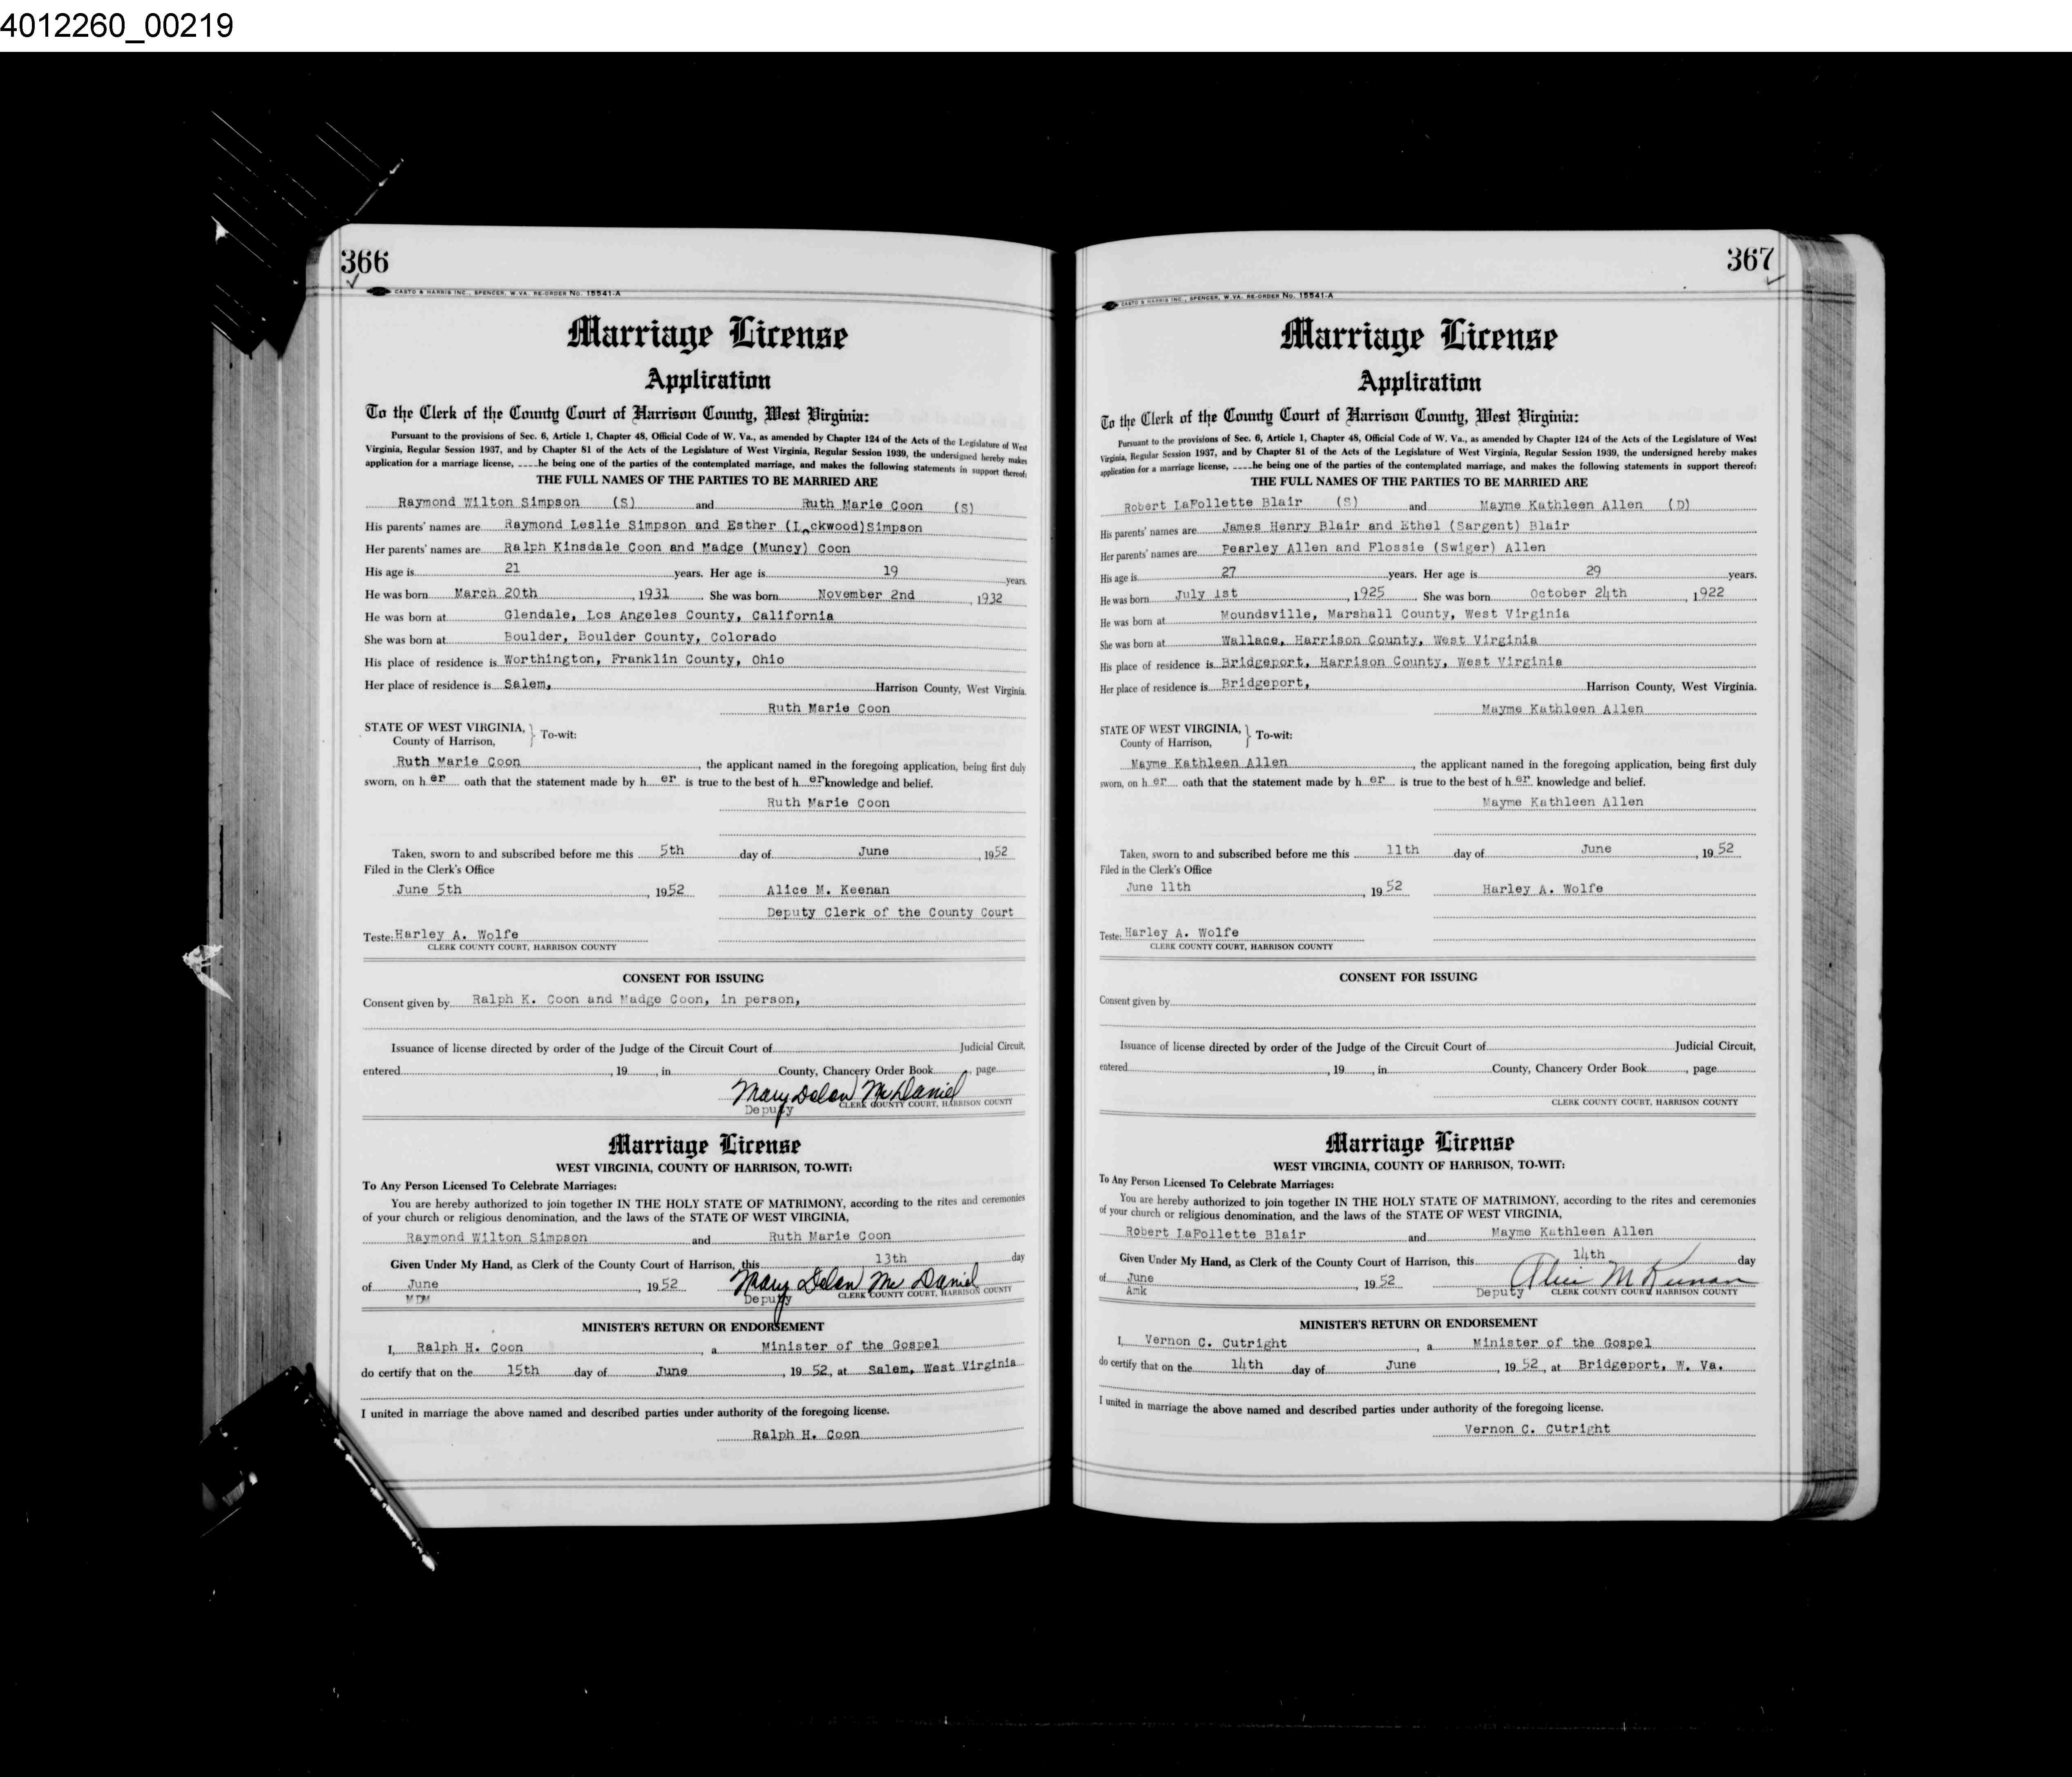 4012260_00219
366
CASTO & HARRIS INC., SPENCER, W.VA. RE-ORDER No. 15541-A
Marriage License
Application
To the Clerk of the County Court of Harrison County, West Virginia:
Pursuant to the provisions of Sec. 6, Article 1, Chapter 48, Official Code of W. Va., as amended by Chapter 124 of the Acts of the Legislature of West
Virginia, Regular Session 1937, and by Chapter 81 of the Acts of the Legislature of West Virginia, Regular Session 1939, the undersigned hereby makes
application for a marriage license, ____he being one of the parties of the contemplated marriage, and makes the following statements in support thereof:
THE FULL NAMES OF THE PARTIES TO BE MARRIED ARE
Raymond Wilton Simpson (S) and Ruth Marie Coon (S)
His parents' names are Raymond Leslie Simpson and Esther (Lockwood)Simpson
Her parents' names are Ralph Kinsdale Coon and Madge (Muncy) Coon
His age is 21 years. Her age is 19 years.
He was born March 20th, 1931 She was born November 2nd, 1932
He was born at Glendale, Los Angeles County, California
She was born at Boulder, Boulder County, Colorado
His place of residence is Worthington, Franklin County, Ohio
Her place of residence is Salem, Harrison County, West Virginia.
Ruth Marie Coon
STATE OF WEST VIRGINIA, } To-wit:
County of Harrison,
Ruth Marie Coon, the applicant named in the foregoing application, being first duly
sworn, on her oath that the statement made by her is true to the best of her knowledge and belief.
Ruth Marie Coon
Taken, sworn to and subscribed before me this 5th day of June, 1952
Filed in the Clerk's Office
June 5th, 1952 Alice M. Keenan
Deputy Clerk of the County Court
Teste: Harley A. Wolfe
CLERK COUNTY COURT, HARRISON COUNTY
CONSENT FOR ISSUING
Consent given by Ralph K. Coon and Madge Coon, in person,
Issuance of license directed by order of the Judge of the Circuit Court of Judicial Circuit,
entered, 19, in County, Chancery Order Book, page
Mary Dolan McDaniel
Deputy CLERK COUNTY COURT, HARRISON COUNTY
Marriage License
WEST VIRGINIA, COUNTY OF HARRISON, TO-WIT:
To Any Person Licensed To Celebrate Marriages:
You are hereby authorized to join together IN THE HOLY STATE OF MATRIMONY, according to the rites and ceremonies
of your church or religious denomination, and the laws of the STATE OF WEST VIRGINIA,
Raymond Wilton Simpson and Ruth Marie Coon
Given Under My Hand, as Clerk of the County Court of Harrison, this 13th day
of June 1952 Mary Dolan McDaniel
MDM Deputy CLERK COUNTY COURT, HARRISON COUNTY
MINISTER'S RETURN OR ENDORSEMENT
I, Ralph H. Coon, a Minister of the Gospel
do certify that on the 15th day of June, 1952, at Salem, West Virginia
I united in marriage the above named and described parties under authority of the foregoing license.
Ralph H. Coon
367
CASTO & HARRIS INC., SPENCER, W.VA. RE-ORDER No. 15541-A
Marriage License
Application
To the Clerk of the County Court of Harrison County, West Virginia:
Pursuant to the provisions of Sec. 6, Article 1, Chapter 48, Official Code of W. Va., as amended by Chapter 124 of the Acts of the Legislature of West
Virginia, Regular Session 1937, and by Chapter 81 of the Acts of the Legislature of West Virginia, Regular Session 1939, the undersigned hereby makes
application for a marriage license, ____he being one of the parties of the contemplated marriage, and makes the following statements in support thereof:
THE FULL NAMES OF THE PARTIES TO BE MARRIED ARE
Robert LaFollette Blair (S) and Mayme Kathleen Allen (D)
His parents' names are James Henry Blair and Ethel (Sargent) Blair
Her parents' names are Pearley Allen and Flossie (Swiger) Allen
His age is 27 years. Her age is 29 years.
He was born July 1st, 1925 She was born October 24th, 1922
He was born at Moundsville, Marshall County, West Virginia
She was born at Wallace, Harrison County, West Virginia
His place of residence is Bridgeport, Harrison County, West Virginia
Her place of residence is Bridgeport, Harrison County, West Virginia.
Mayme Kathleen Allen
STATE OF WEST VIRGINIA, } To-wit:
County of Harrison,
Mayme Kathleen Allen, the applicant named in the foregoing application, being first duly
sworn, on her oath that the statement made by her is true to the best of her knowledge and belief.
Mayme Kathleen Allen
Taken, sworn to and subscribed before me this 11th day of June, 1952
Filed in the Clerk's Office
June 11th, 1952 Harley A. Wolfe
Teste: Harley A. Wolfe
CLERK COUNTY COURT, HARRISON COUNTY
CONSENT FOR ISSUING
Consent given by
Issuance of license directed by order of the Judge of the Circuit Court of Judicial Circuit,
entered, 19, in County, Chancery Order Book, page
CLERK COUNTY COURT, HARRISON COUNTY
Marriage License
WEST VIRGINIA, COUNTY OF HARRISON, TO-WIT:
To Any Person Licensed To Celebrate Marriages:
You are hereby authorized to join together IN THE HOLY STATE OF MATRIMONY, according to the rites and ceremonies
of your church or religious denomination, and the laws of the STATE OF WEST VIRGINIA,
Robert LaFollette Blair and Mayme Kathleen Allen
Given Under My Hand, as Clerk of the County Court of Harrison, this 14th day
of June, 1952 Alice M Keenan
Amk Deputy CLERK COUNTY COURT, HARRISON COUNTY
MINISTER'S RETURN OR ENDORSEMENT
I, Vernon C. Cutright, a Minister of the Gospel
do certify that on the 14th day of June, 1952, at Bridgeport, W. Va.
I united in marriage the above named and described parties under authority of the foregoing license.
Vernon C. Cutright